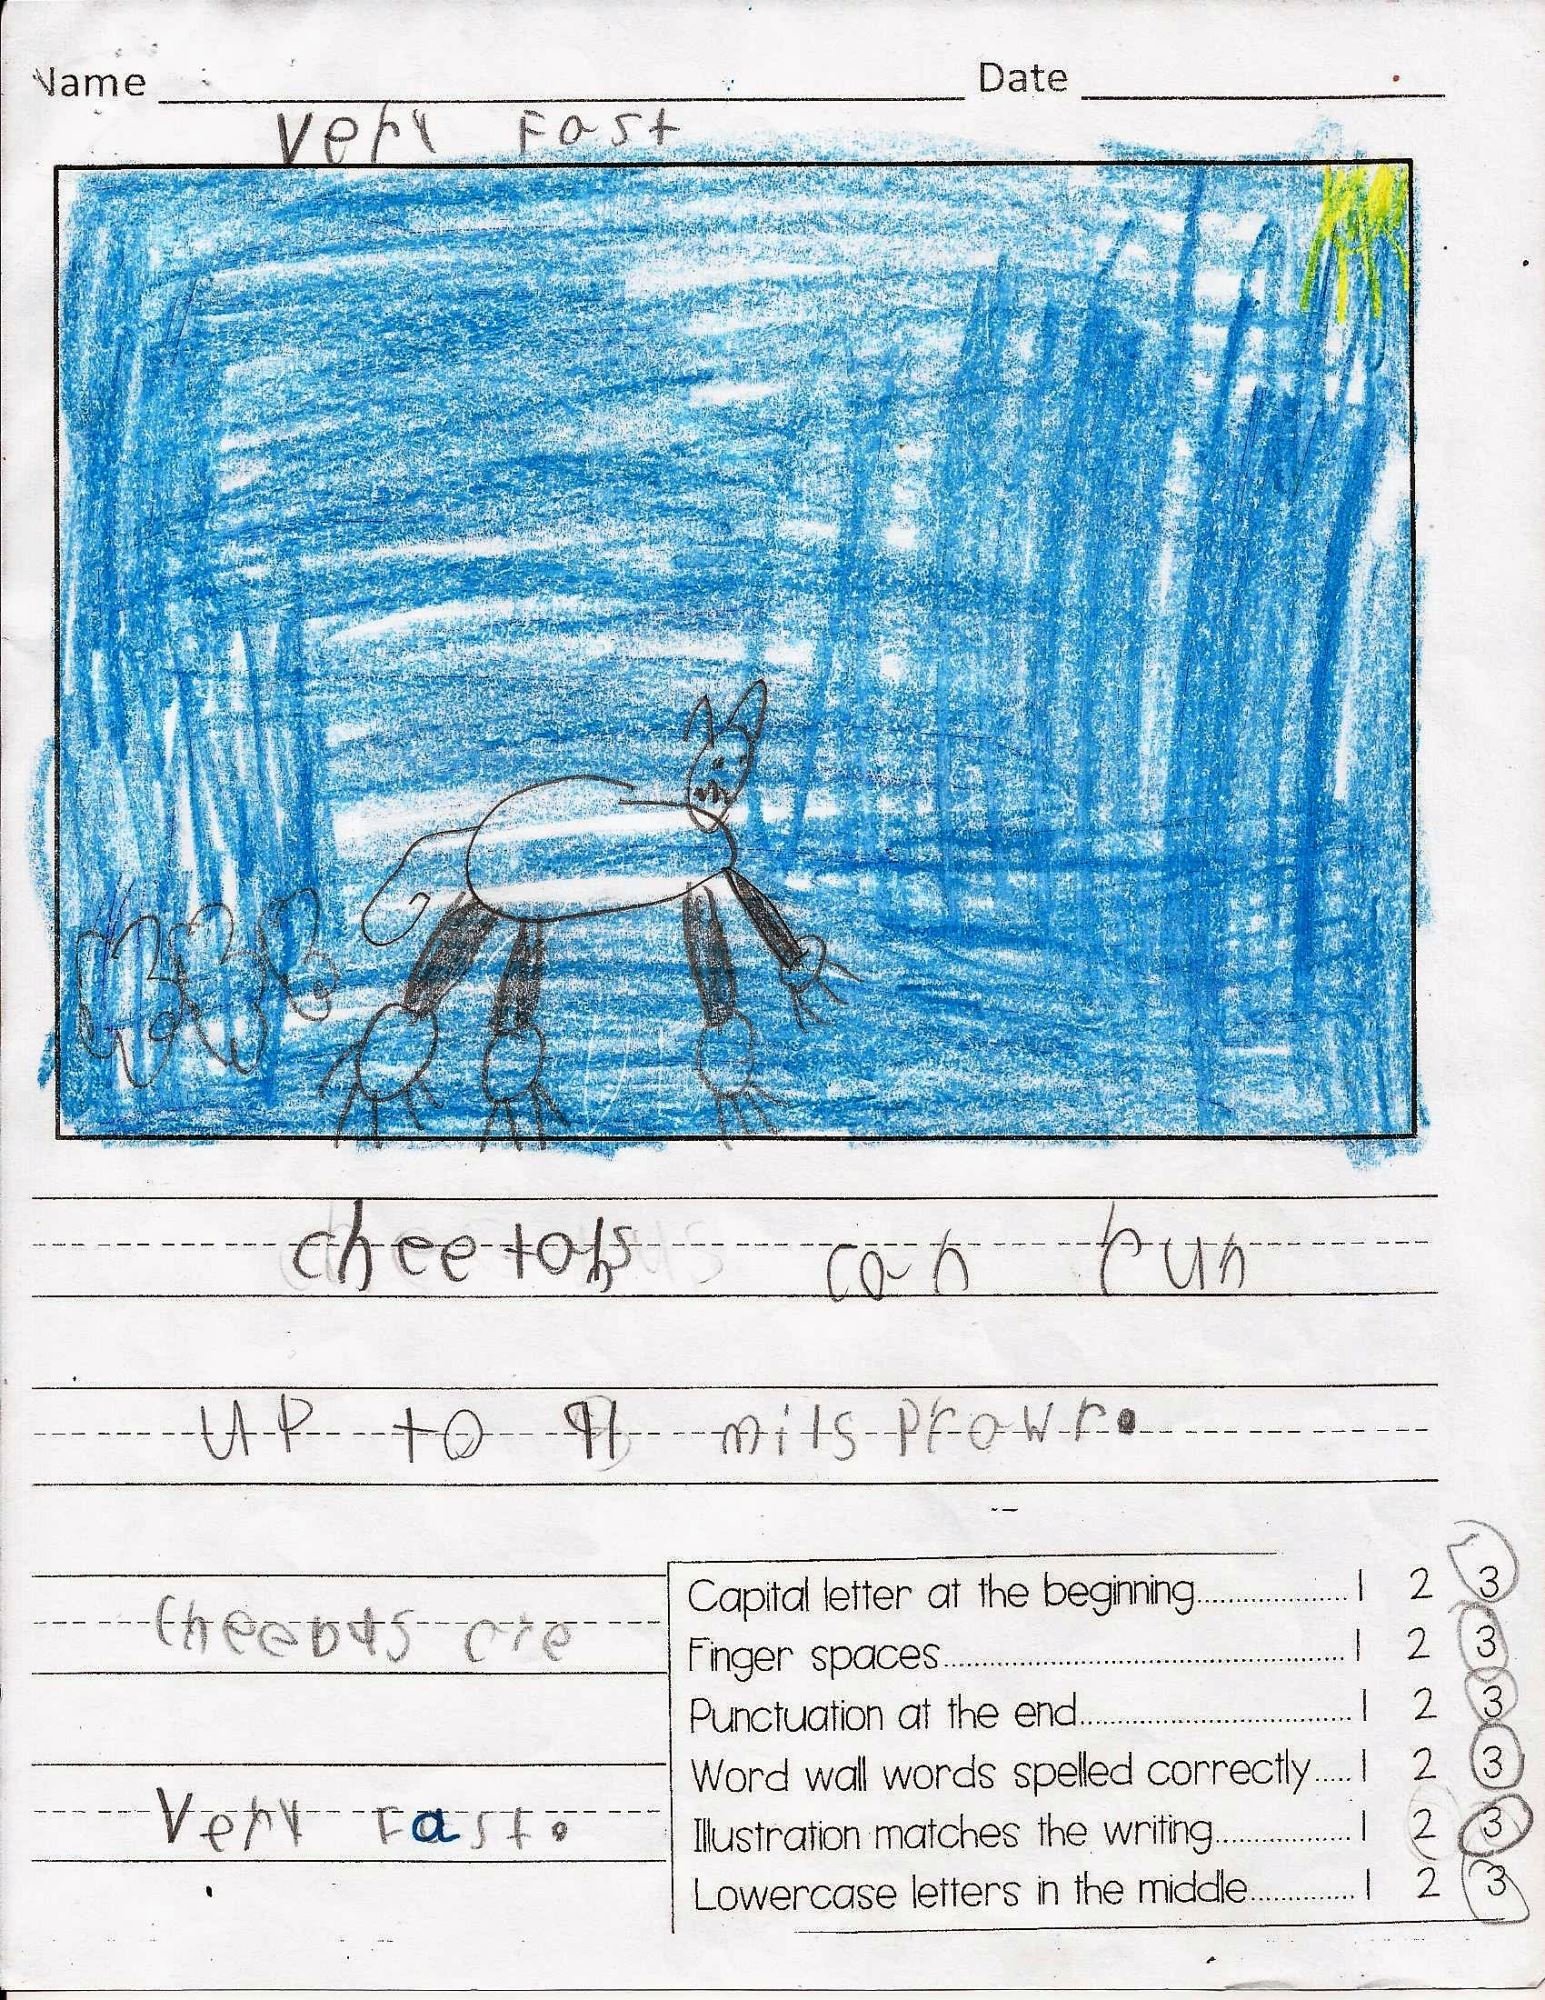 Name Date
Very Fast
cheetahs can run
up to mils prowr.
are
Very Fast.
Capital letter at the beginning.................... 1 2 3
Finger spaces.................... 1 2 3
Punctuation at the end.................... 1 2 3
Word wall words spelled correctly..... 1 2 3
Illustration matches the writing.................... 1 2 3
Lowercase letters in the middle.............. 1 2 3